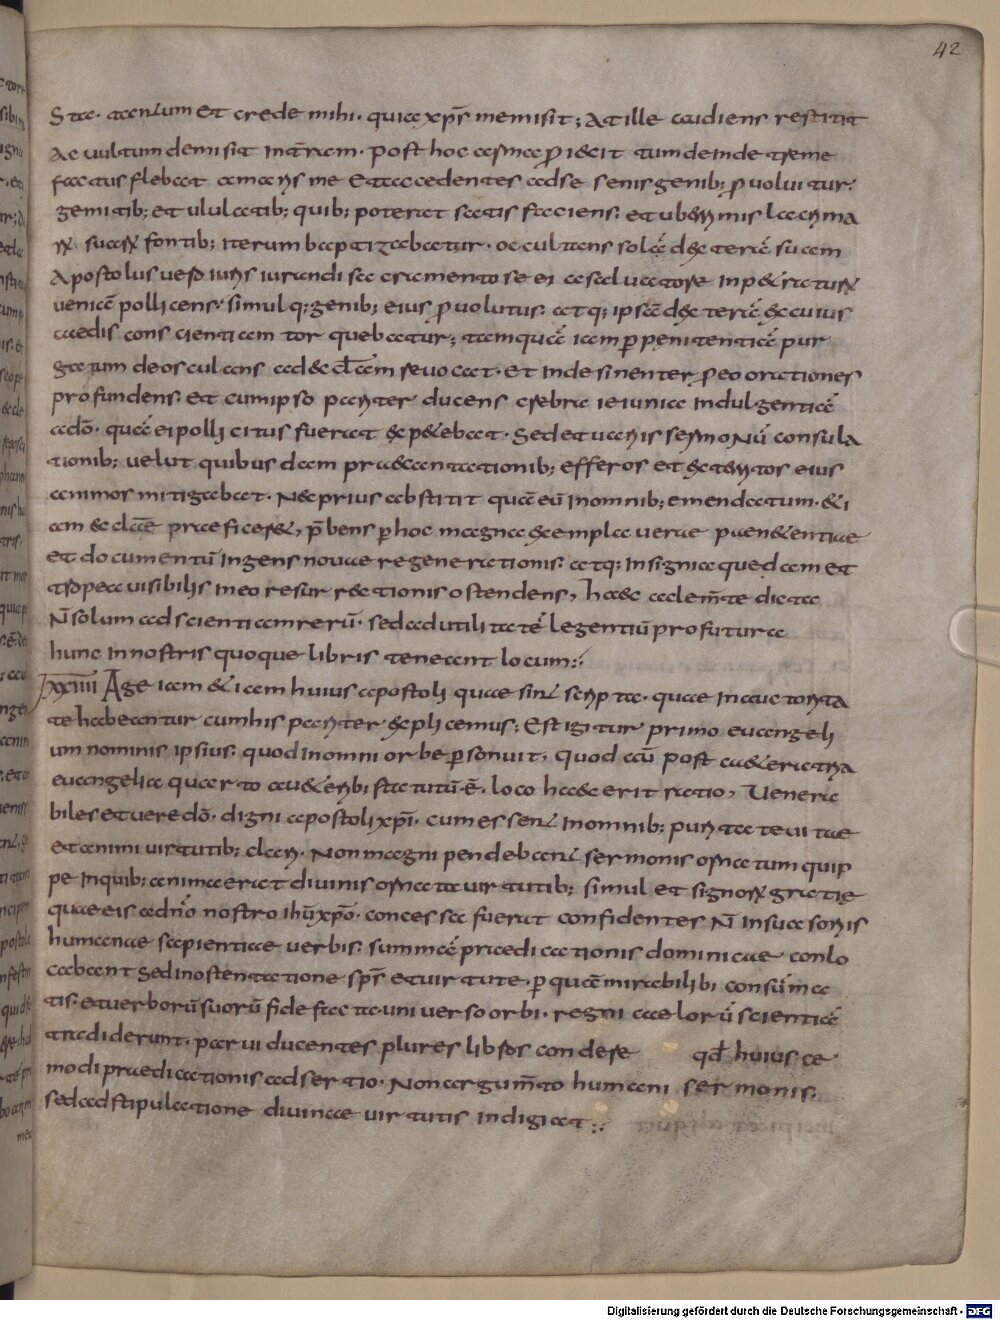 42
Sta. tantum et crede mihi. quia xp̄s me misit; at ille audiens restitit
Ac uultum demisit in terram. post hoc arma proiecit tum deinde treme
factus flebat amarius me et accedentes ad se senis genib; prouoluitur.
gemitib; et ululatib; quib; poterat satis faciens. et uberrimis lacrima
rum suarum fontib; iterum baptizabatur. occultans solā dexterā suam
Apostolus uero iuris iurandi sacramento se ei a saluatore inpetraturum
ueniā pollicens. simulq; genib; eius prouolutus. atq; ipsā dexterā de cuius
caedis conscientiam torquebatur; tamquā iam per penitentiā pur
gatam deosculans ad ecl̄am reuocat. Et indesinenter pro eo orationes
profundens. et cum ipso pariter ducens crebra ieiunia indulgentiā
a dō. quā ei pollicitus fuerat expetebat. Sed et uariis sermonū consola
tionib; uelut quibusdam praecantationib; efferos et exterritos eius
animos mitigabat. Nec prius abstitit quā eū in omnib; emendatum. eti
am eclae praeficeret, p̄bens per hoc magna exempla uerae paenitentiae
et documentū ingens nouae regenerationis. atq; insignia quedam et
tropea uisibilis in eo resurrectionis ostendens, haec a clem̄te dicta
N̄ solum ad scientiam rerū. sed ad utilitatē legentiū profutura
hunc in nostris quoque libris teneant locum:.
XXIIII Age iam etiam huius apostoli quae sint scripta. quae in auctorita
te habeantur cum his pariter explicemus; Est igitur primo euangeli
um nominis ipsius. quod in omni orbe personuit. quod cū post cetera tria
euangelia quarto a ueteribus statutū. ē. loco haec erit ratio, Uenera
biles et uere dō. digni apostoli xp̄i. cum essent in omnib; puritate uitae
et animi uirtutib; clari. Non magni pendebant sermonis ornatum quip
pe in quib; anima erat diuinis ornata uirtutib; simul et signorum gratie
quae eis a dn̄o nostro ihū xp̄o. concessa fuerat confidentes N̄ in suasoriis
humanae sapientiae uerbis. summā praedicationis dominicae conlo
cabant sed in ostentatione sp̄s et uirtute. per quā mirabilibi consūma
tis. et uerborū suorū fide facta uniuerso orbi. regni caelorū scientiā
tradiderunt. parui ducentes plures libros condere qd̄ huiusce
modi praedicationis adsertio. Non argum̄to humani sermonis.
sed adstipulatione diuinae uirtutis indigeat:.
Digitalisierung gefördert durch die Deutsche Forschungsgemeinschaft - DFG